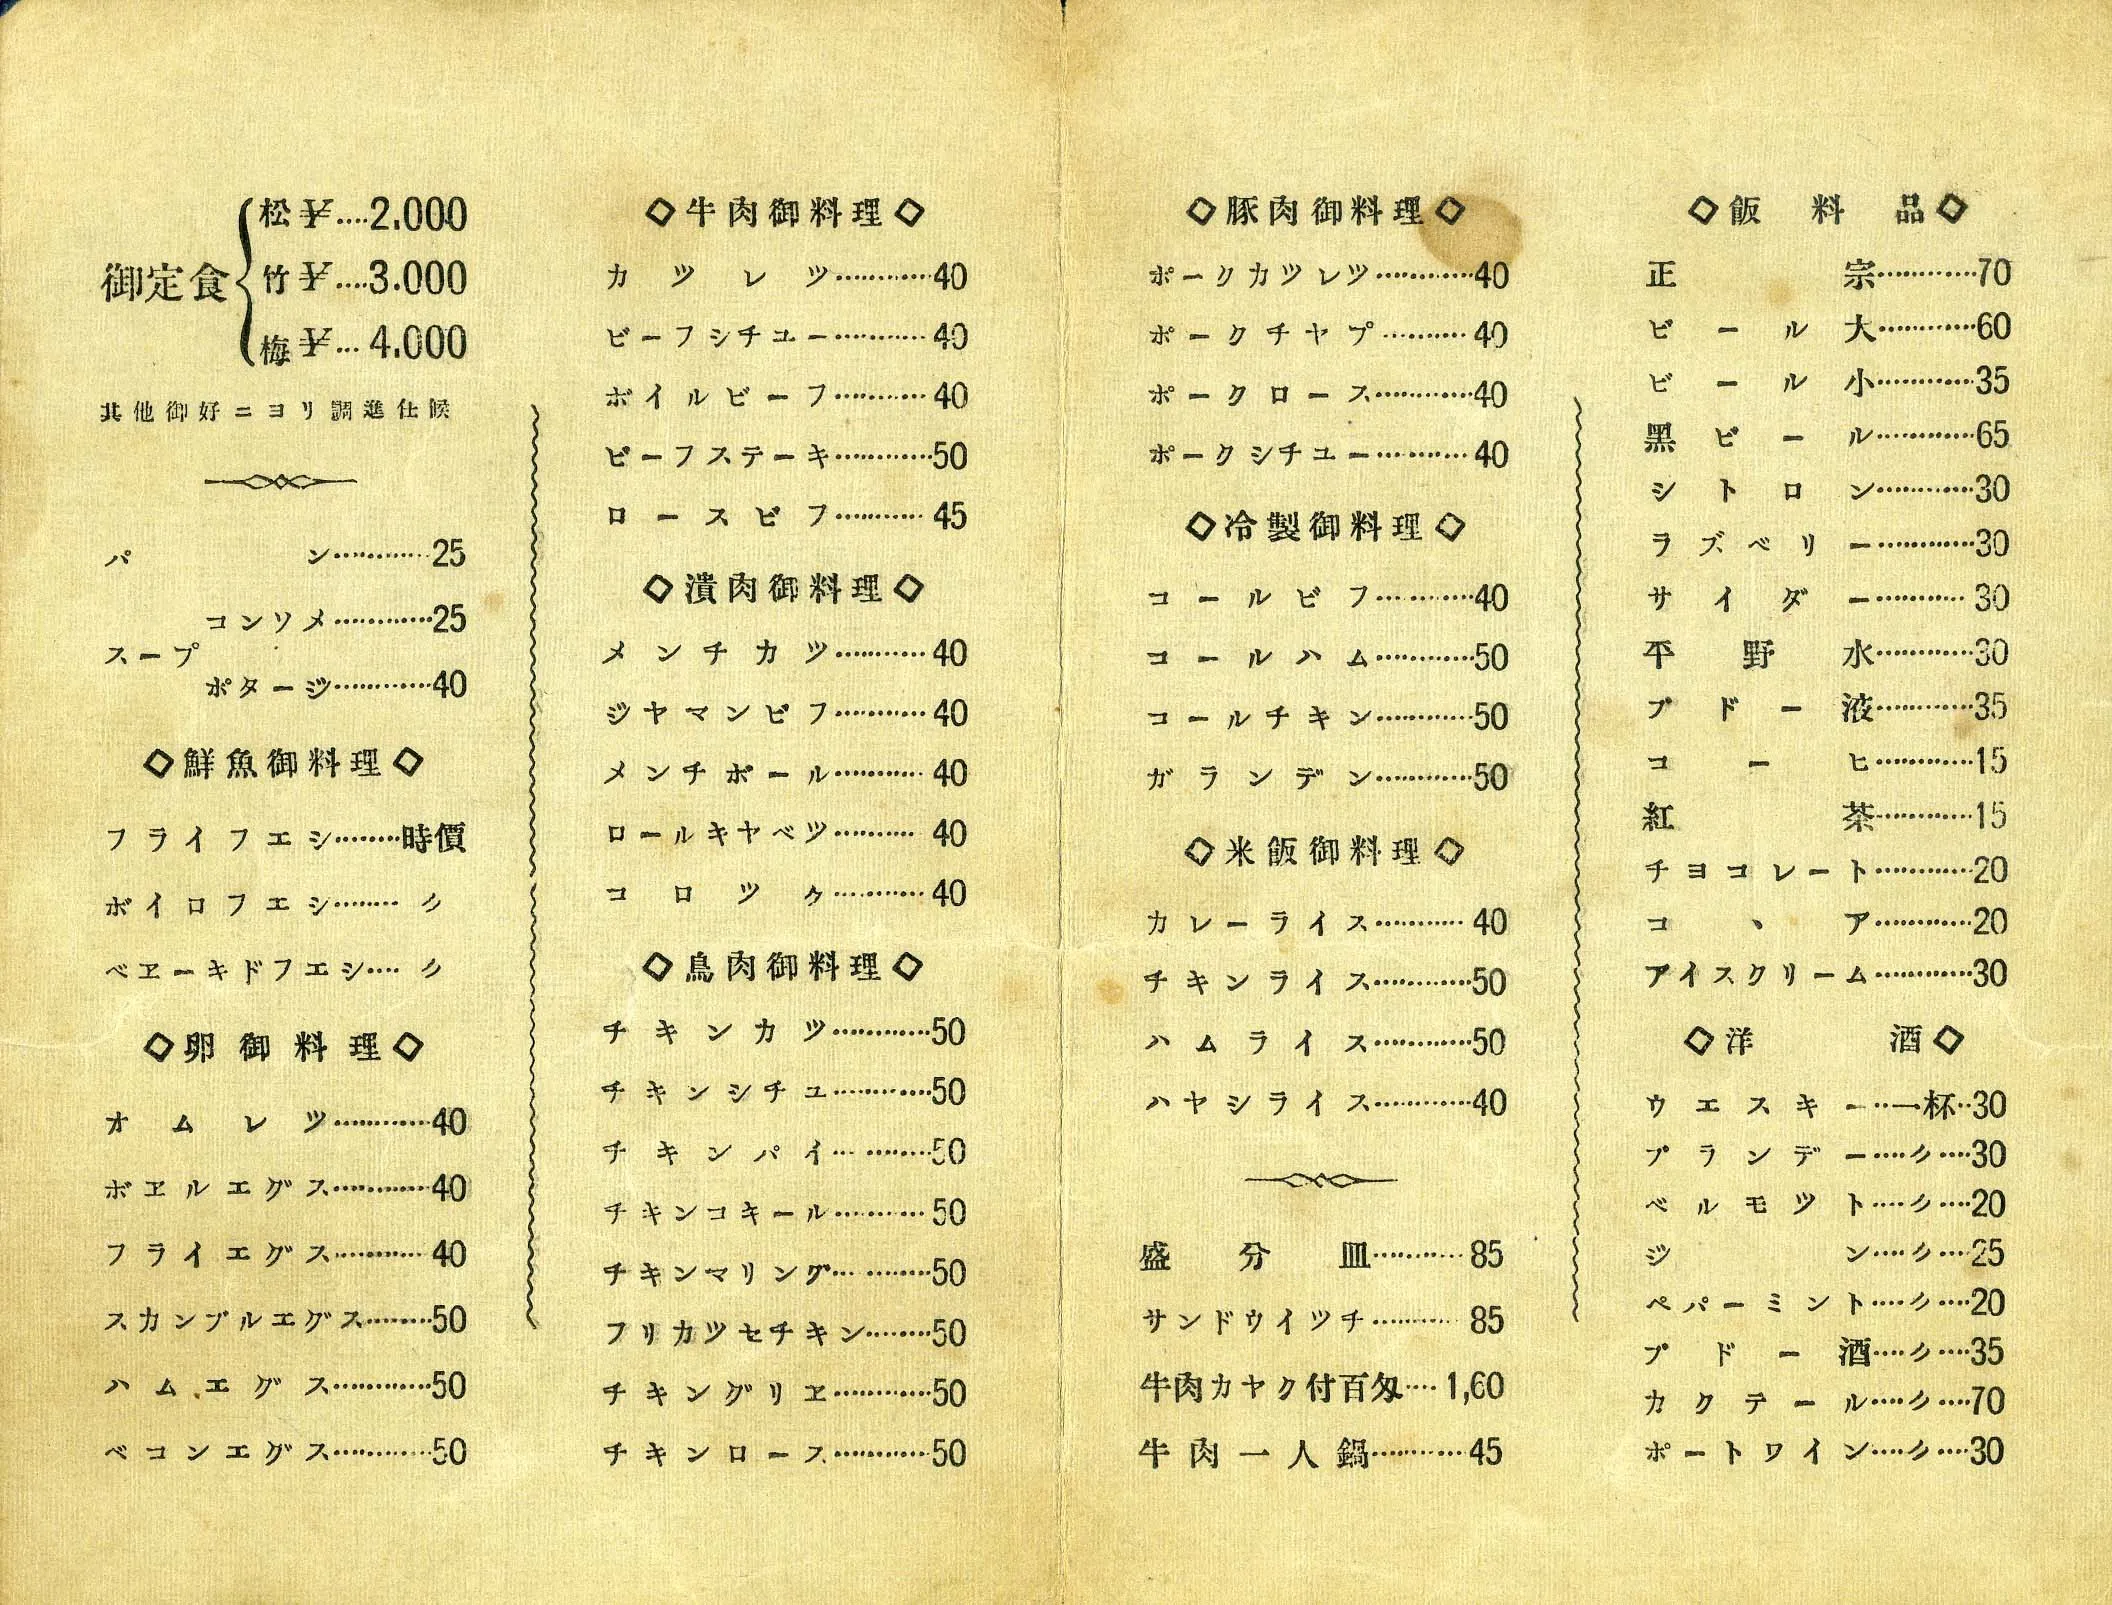 御定食
松 ¥....2,000
竹 ¥....3.000
梅 ¥... 4.000
其他御好ニヨリ調進仕候
パン…………25
スープ
コンソメ…………25
ポタージ…………40
◇鮮魚御料理◇
フライフエシ………時價
ボイロフエシ……… 〃
ベヱーキドフエシ…. 〃
◇卵御料理◇
オムレツ…………40
ボヱルエグス…………40
フライエグス………… 40
スカンブルエグス………50
ハムエグス…………50
ベコンエグス…………50
◇牛肉御料理◇
カツレツ…………40
ビーフシチユー………… 40
ボイルビーフ………… 40
ビーフステーキ…………50
ロースビフ………… 45
◇潰肉御料理◇
メンチカツ………… 40
ジヤマンビフ………… 40
メンチボール………… 40
ロールキヤベツ………… 40
コロツケ………… 40
◇鳥肉御料理◇
チキンカツ…………50
チキンシチユ…………50
チキンパイ…………50
チキンコキール………… 50
チキンマリング…………50
フリカツセチキン………50
チキングリヱ…………50
チキンロース…………50
◇豚肉御料理◇
ポークカツレツ…………40
ポークチヤプ………… 40
ポークロース…………40
ポークシチユー………… 40
◇冷製御料理◇
コールビフ…………40
コールハム…………50
コールチキン…………50
ガランデン…………50
◇米飯御料理◇
カレーライス………… 40
チキンライス…………50
ハムライス…………50
ハヤシライス…………40
盛分皿………… 85
サンドウイツチ………… 85
牛肉カヤク付百匁…. 1,60
牛肉一人鍋…………45
◇飯料品◇
正宗…………70
ビール大…………60
ビール小…………35
黑ビール…………65
シトロン…………30
ラズベリー…………30
サイダー………… 30
平野水…………30
ブドー液…………35
コーヒ…………15
紅茶…………15
チヨコレート…………20
コヽア…………20
アイスクリーム…………30
◇洋酒◇
ウエスキー‥一杯‥30
ブランデー….〃….30
ベルモツト….〃….20
ジン….〃….25
ペパーミント….〃….20
ブドー酒….〃….35
カクテール….〃….70
ポートワイン….〃….30